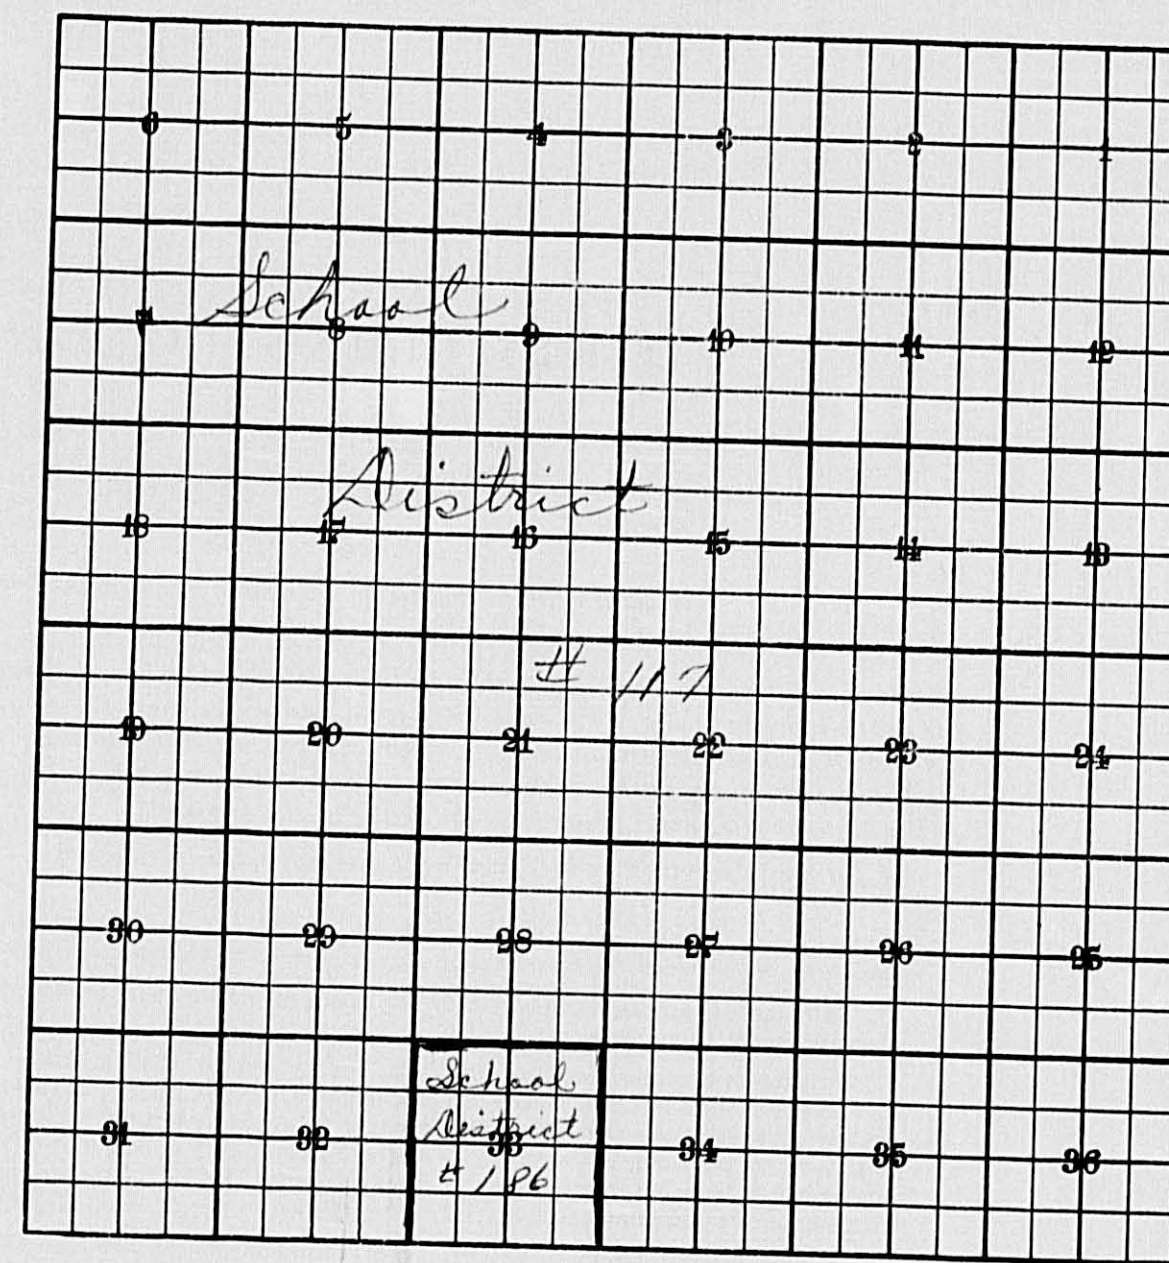 6 5 4 3 2 1
School
7 8 9 10 11 12
District
18 17 16 15 14 13
# 117
19 20 21 22 23 24
30 29 28 27 26 25
School
District
31 32 33 34 35 36
# 186